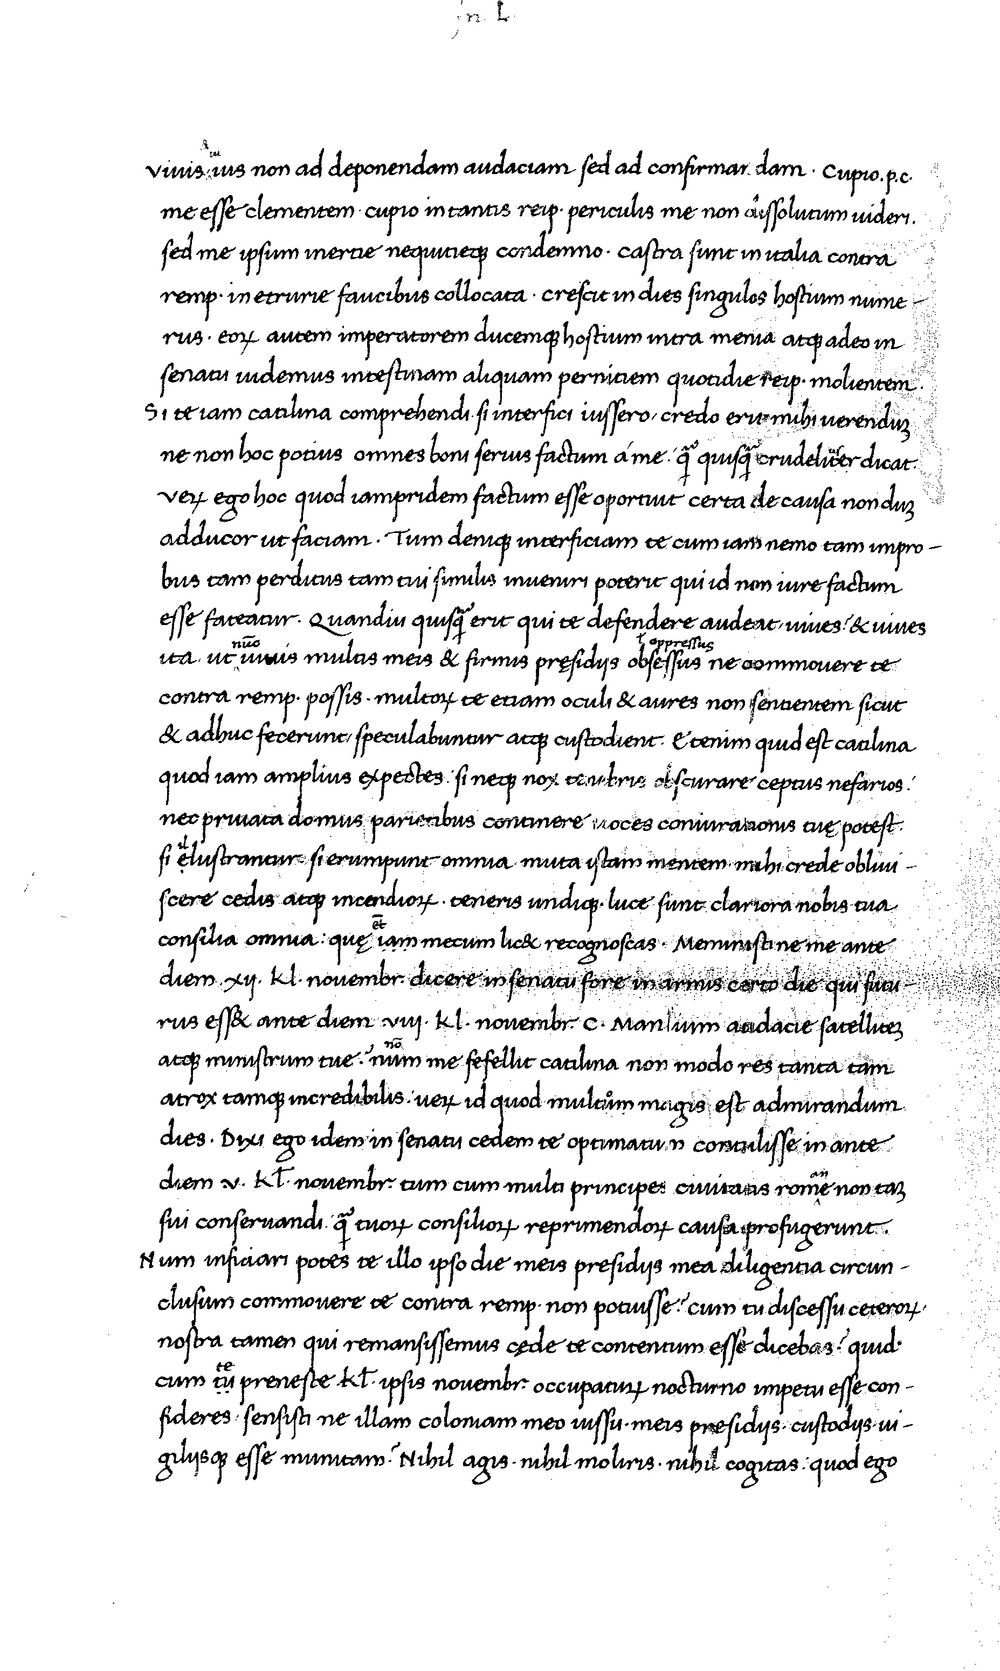 In L
vivis iuus non ad deponendam audaciam sed ad confirmandam · Cupio · p.c.
me esse clementem · cupio in tantis reip· periculis me non dissolutum uideri.
sed me ipsum inertie nequitieq; condemno · Castra sunt in italia contra
remp· in etrurie faucibus collocata · crescit in dies singulos hostium nume-
rus · eoꝝ autem imperatorem ducemq; hostium intra menia atq; adeo in
senatu uidemus intestinam aliquam perniciem quotidie reip· molientem.
Si te iam catilina comprehendi · si interfici iussero, credo erit mihi uerenduꝫ
ne non hoc potius omnes boni serius factum á me · qͣ quisqͣ crudeliter dicat.
veꝝ ego hoc quod iampridem factum esse oportuit certa de causa nonduꝫ
adducor ut faciam · Tum deniq; interficiam te cum iam nemo tam impro-
bus tam perditus tam tui similis inueniri poterit qui id non iure factum
esse fateatur · Quandiu quisqͣ erit qui te defendere audeat, uiues: & uiues
nūc
ł oppressus
ita · ut uiuis multis meis & firmis pręsidijs obsessus ne commouere te
contra remp· possis · multoꝝ te etiam oculi & aures non sentientem sicut
& adhuc fecerunt, speculabuntur atq; custodient · Etenim quid est catilina
quod iam amplius expectes: si neq; nox tenebris obscurare ceptus nefarios:
nec privata domus parietibus continere uoces coniurationis tuę potest.
si ęlustrantur si erumpunt omnia · muta istam mentem · mihi crede obliui-
scere cedis atq; incendioꝝ · teneris undiq; luce sunt clariora nobis tua
et
consilia omnia: quę iam mecum lic& recognoscas · Meministi ne me ante
diem · xij · kl · novembr· dicere in senatu fore in armis certo die qui futu-
rus ess& ante diem · viij · kl · novembr· C · Manlium audacie satelliteꝫ
nō
atq; ministrum tue: num me fefellit catilina non modo res tanta tam
atrox tamq; incredibilis: ueꝝ id quod multum magis est admirandum
dies · Dixi ego idem in senatu cedem te optimatum contulisse in ante
diem · v · kł · novembr· tum cum multi principes civitatis rome non taꝫ
sui conseruandi · qͣ tuoꝝ consilioꝝ reprimendoꝝ causa profugerunt.
Num inficiari potes te illo ipso die meis presidijs mea diligentia circun-
clusum commouere te contra remp· non potuisse: cum tu discessu ceteroꝝ·
nostra tamen qui remansissemus cęde te contentum esse dicebas: quid·
te
cum tu preneste kł · ipsis novembr· occupatuꝝ nocturno impetu esse con-
fideres · sensisti ne illam coloniam meo iussu · meis presidijs · custodijs · ui-
gilijsq; esse munitam: Nihil agis · nihil moliris · nihil cogitas: quod ego